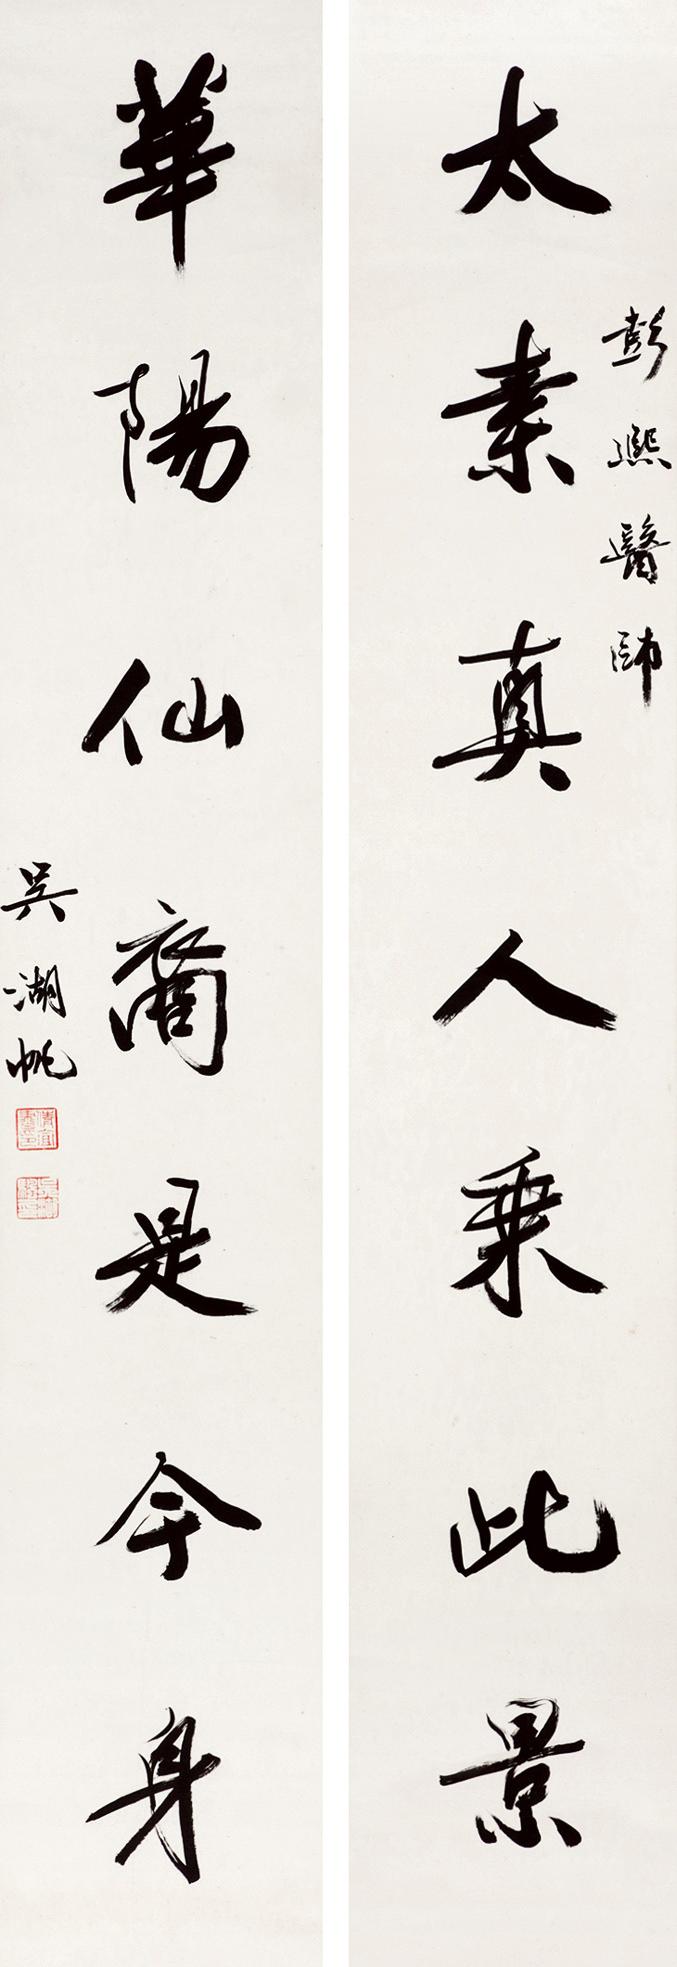 彭熙醫師
太素真人乘此景
華陽仙裔是今身
吳湖帆